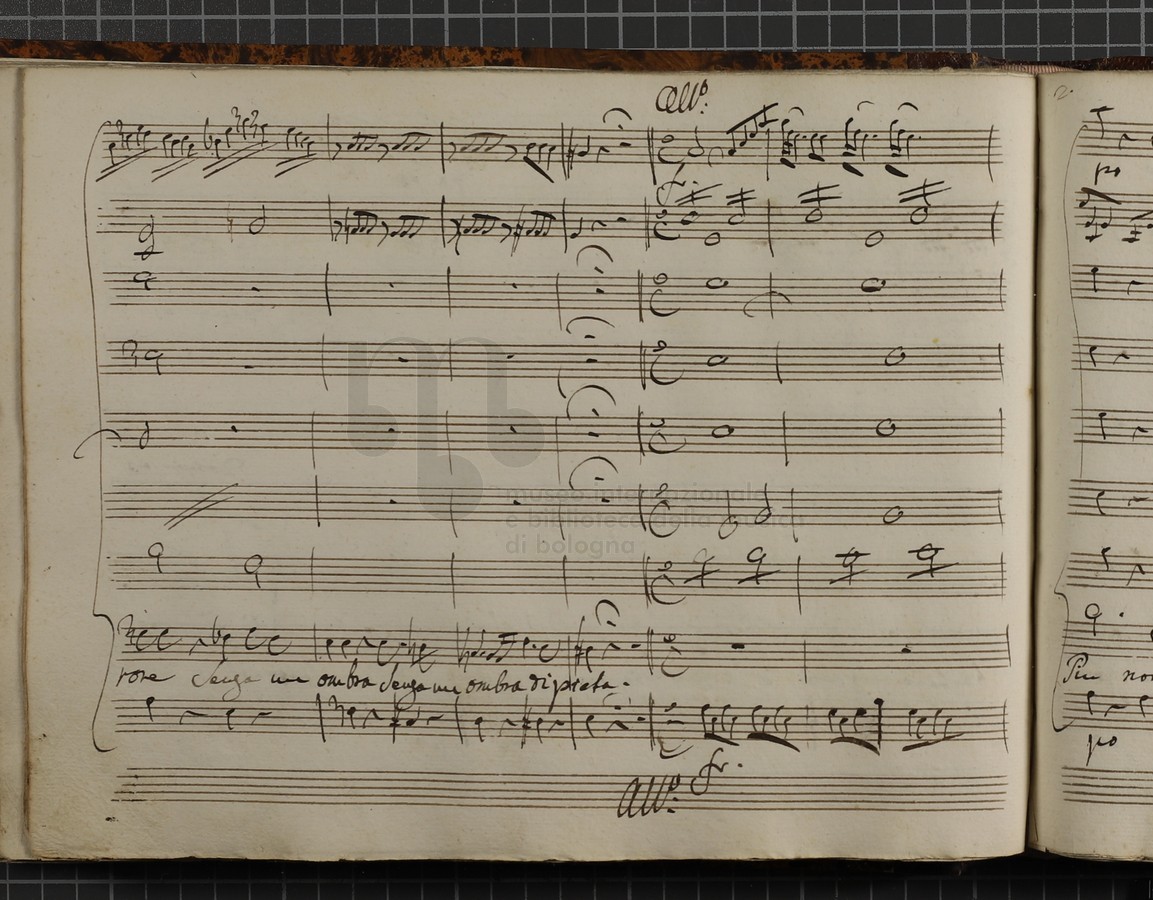 All.º
for.
museo internazionale
e biblioteca della musica
di bologna
rore Senza un ombra Senza un ombra di pieta.
All.º for.
po
Piu non
po